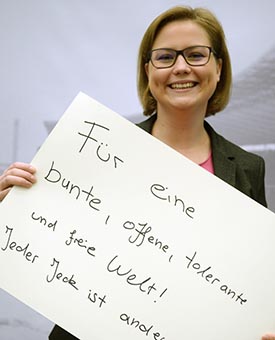 Für eine
bunte, offene, tolerante
und freie Welt!
Jeder Jeck ist ander